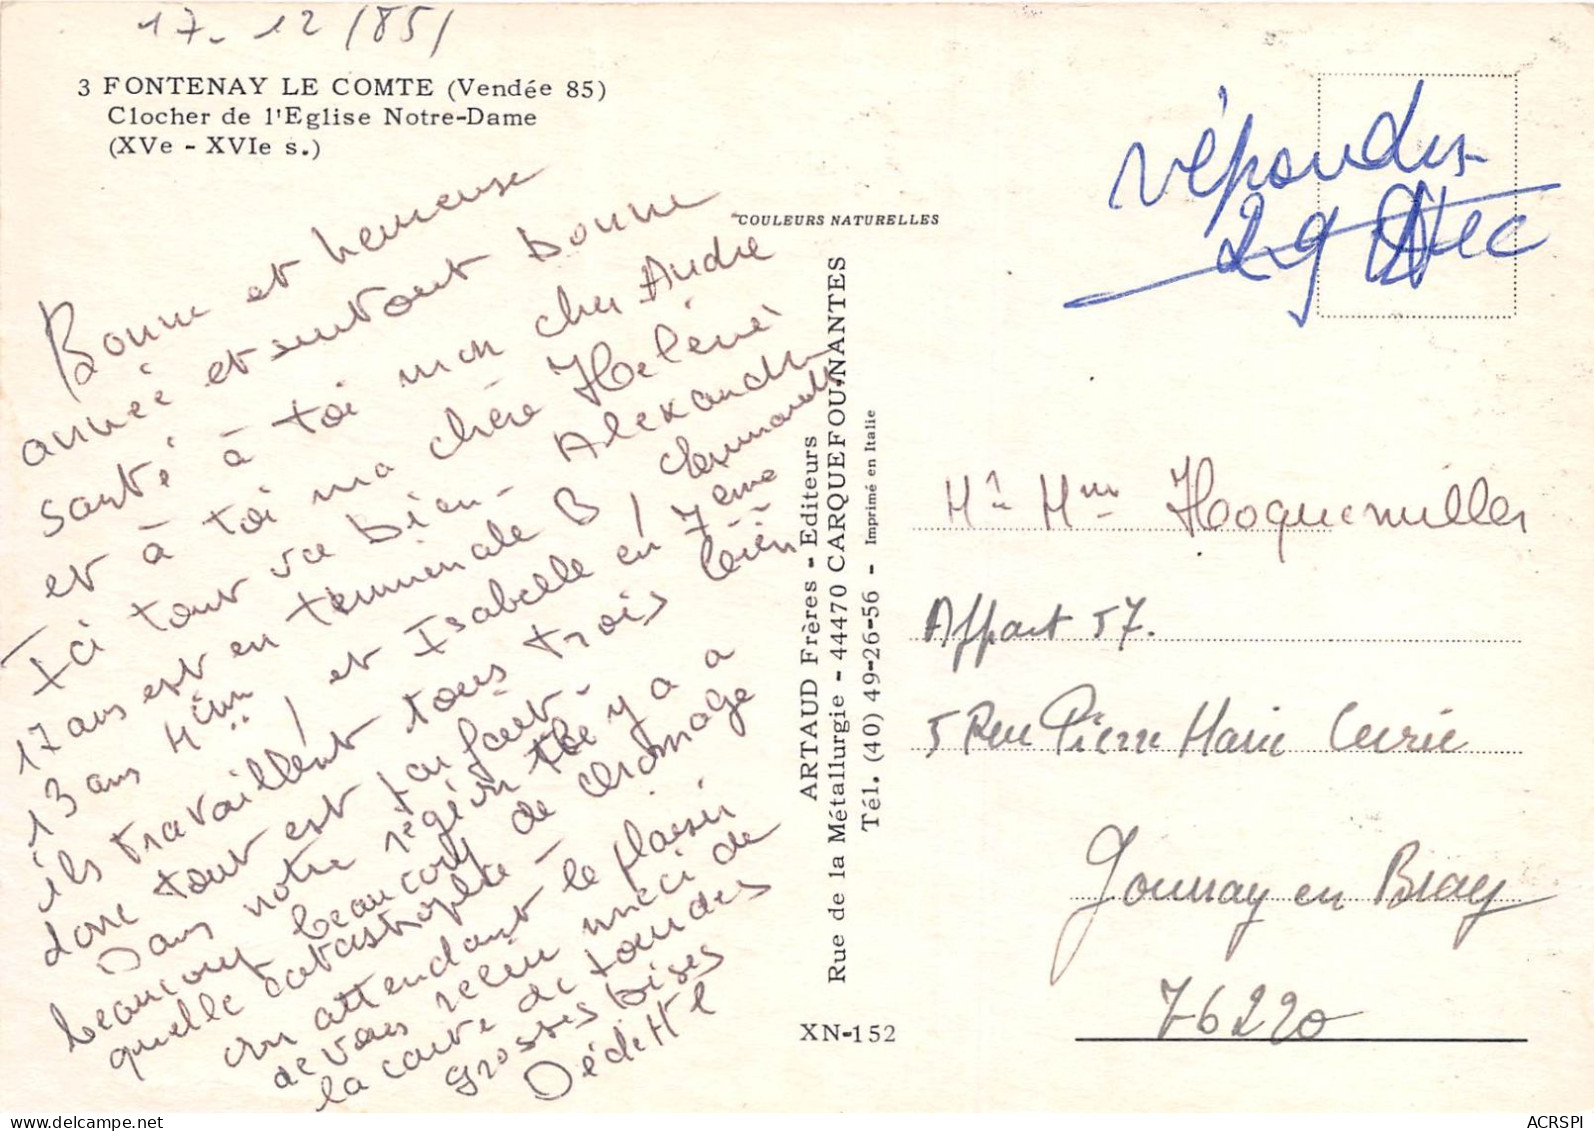 17-12/85/
3 FONTENAY LE COMTE (Vendée 85)
Clocher de l'Eglise Notre-Dame
(XVe - XVIe s.)
Bonne et heureuse
année et surtout bonne
santé à toi mon cher André
et à toi ma chère Hélène
Ici tout va bien - Alexandre
17 ans est en terminale B,
13 ans 4ème, et Isabelle en 7ème
ils travaillent tous trois bien
donc tout est parfait -
Dans notre région il y a
beaucoup beaucoup de chomage
quelle catastrophe -
en attendant le plaisir
de vous revoir merci de
la carte de
grosses bises
Dédette
COULEURS NATURELLES
ARTAUD Frères - Editeurs
Rue de la Métallurgie - 44470 CARQUEFOU-NANTES
Tél. (40) 49-26-56 - Imprimé en Italie
XN-152
répondu
29 Dec
Mr Mme Hoquemiller
Appart 57.
5 Rue Pierre Marie Curie
Gournay en Bray
76220
ACRSPI